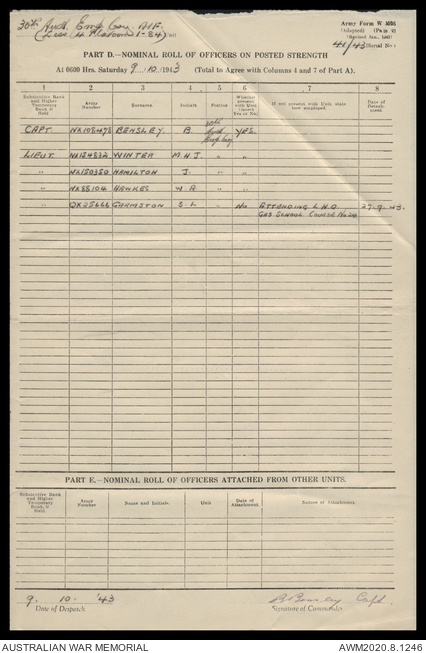 30th Aust. Emp Coy. AIF.
(Less 4 Platoons 1-84) Unit
Army Form W 3008
(Adapted) (Page 2)
(Revised Jan., 1943)
41/43 (Serial No)
PART D.—NOMINAL ROLL OF OFFICERS ON POSTED STRENGTH
At 0600 Hrs. Saturday 9.10.1943 (Total to Agree with Columns 4 and 7 of Part A).
1 2 3 4 5 6 7 8
Substantive Rank and Higher Temporary Rank if Held. Army Number Surname. Initials Posting Whether present with Unit (insert Yes or No) If not present with Unit, state how employed. Date of Detachment.
CAPT. NX108478 BENSLEY B. 30th Aust Emp Coy YES.
LIEUT. NX154832 WINTER M.H.J. " "
" NX150350 HAMILTON J. " "
" NX88104 HAWKES W.A. " "
" QX25666 GARMSTON S.L. " No ATTENDING L.H.Q. 27.9.43.
GAS SCHOOL COURSE No
PART E.—NOMINAL ROLL OF OFFICERS ATTACHED FROM OTHER UNITS.
Substantive Rank and Higher Temporary Rank, if Held. Army Number Name and Initials. Unit Date of Attachment. Nature of Attachment.
9. 10. '43 B Bensley Capt
Date of Despatch Signature of Commander
AUSTRALIAN WAR MEMORIAL AWM2020.8.1246